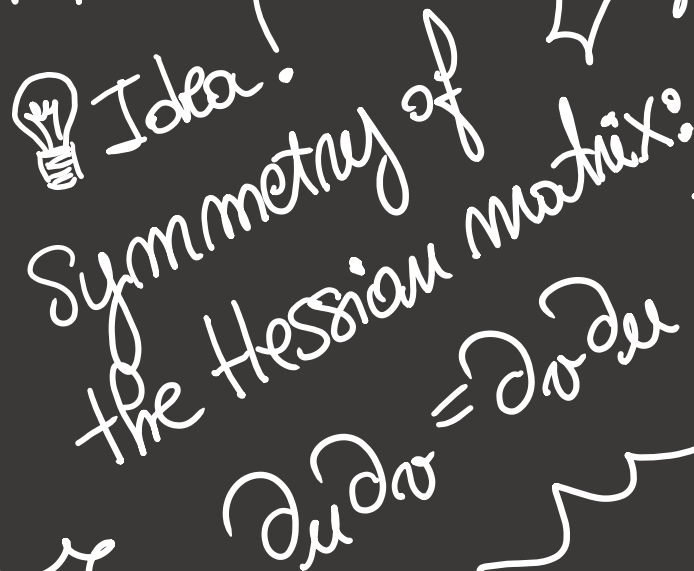 Idea!
Symmetry of
the Hessian matrix:
∂u∂v = ∂v∂u